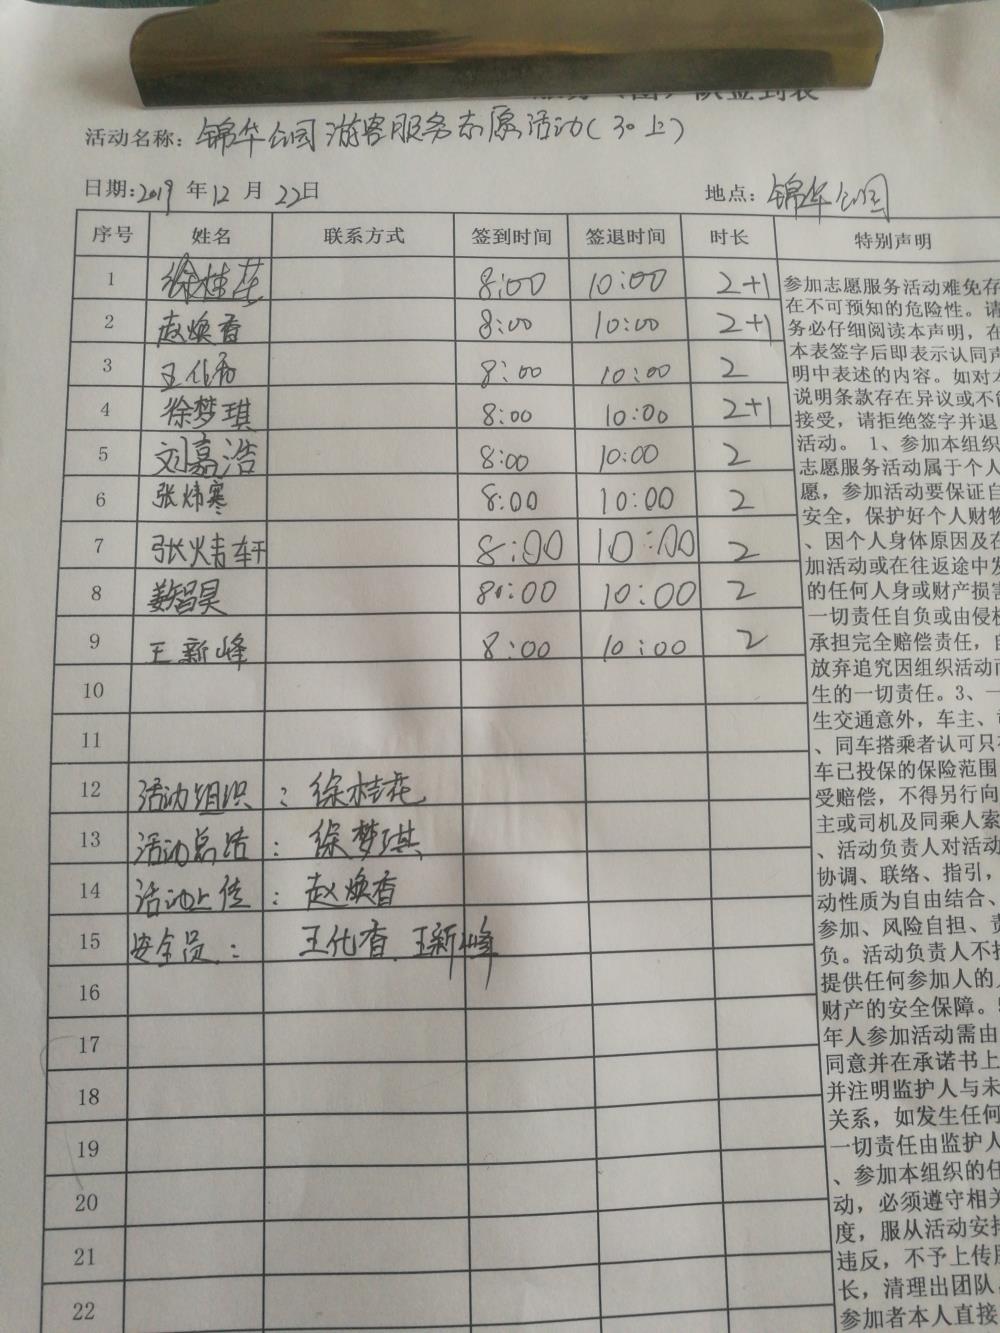 活动名称：锦华公园游客服务志愿活动(30上)
日期:2019年12月22日 地点：锦华公园
序号 姓名 联系方式 签到时间 签退时间 时长 特别声明
1 徐桂花 8:00 10:00 2+1
2 赵焕香 8:00 10:00 2+1
3 王化香 8:00 10:00 2
4 徐梦琪 8:00 10:00 2+1
5 刘嘉浩 8:00 10:00 2
6 张炜寒 8:00 10:00 2
7 张婧轩 8:00 10:00 2
8 姜智昊 8:00 10:00 2
9 王新峰 8:00 10:00 2
10
11
12 活动组织：徐桂花
13 活动总结：徐梦琪
14 活动上传：赵焕香
15 安全员：王化香、王新峰
16
17
18
19
20
21
22
参加志愿服务活动难免存
在不可预知的危险性。请
务必仔细阅读本声明，在
本表签字后即表示认同声
明中表述的内容。如对本
说明条款存在异议或不能
接受，请拒绝签字并退
活动。1、参加本组织
志愿服务活动属于个人
愿，参加活动要保证自
安全，保护好个人财物
、因个人身体原因及在
加活动或在往返途中发
的任何人身或财产损害
一切责任自负或由侵权
承担完全赔偿责任，自
放弃追究因组织活动而
生的一切责任。3、一
生交通意外，车主、司
、同车搭乘者认可只在
车已投保的保险范围
受赔偿，不得另行向
主或司机及同乘人索
、活动负责人对活动
协调、联络、指引，
动性质为自由结合、
参加、风险自担、责
负。活动负责人不抱
提供任何参加人的人
财产的安全保障。5
年人参加活动需由
同意并在承诺书上
并注明监护人与未
关系，如发生任何
一切责任由监护人
、参加本组织的任
动，必须遵守相关
度，服从活动安排
违反，不予上传服
长，清理出团队。
参加者本人直接